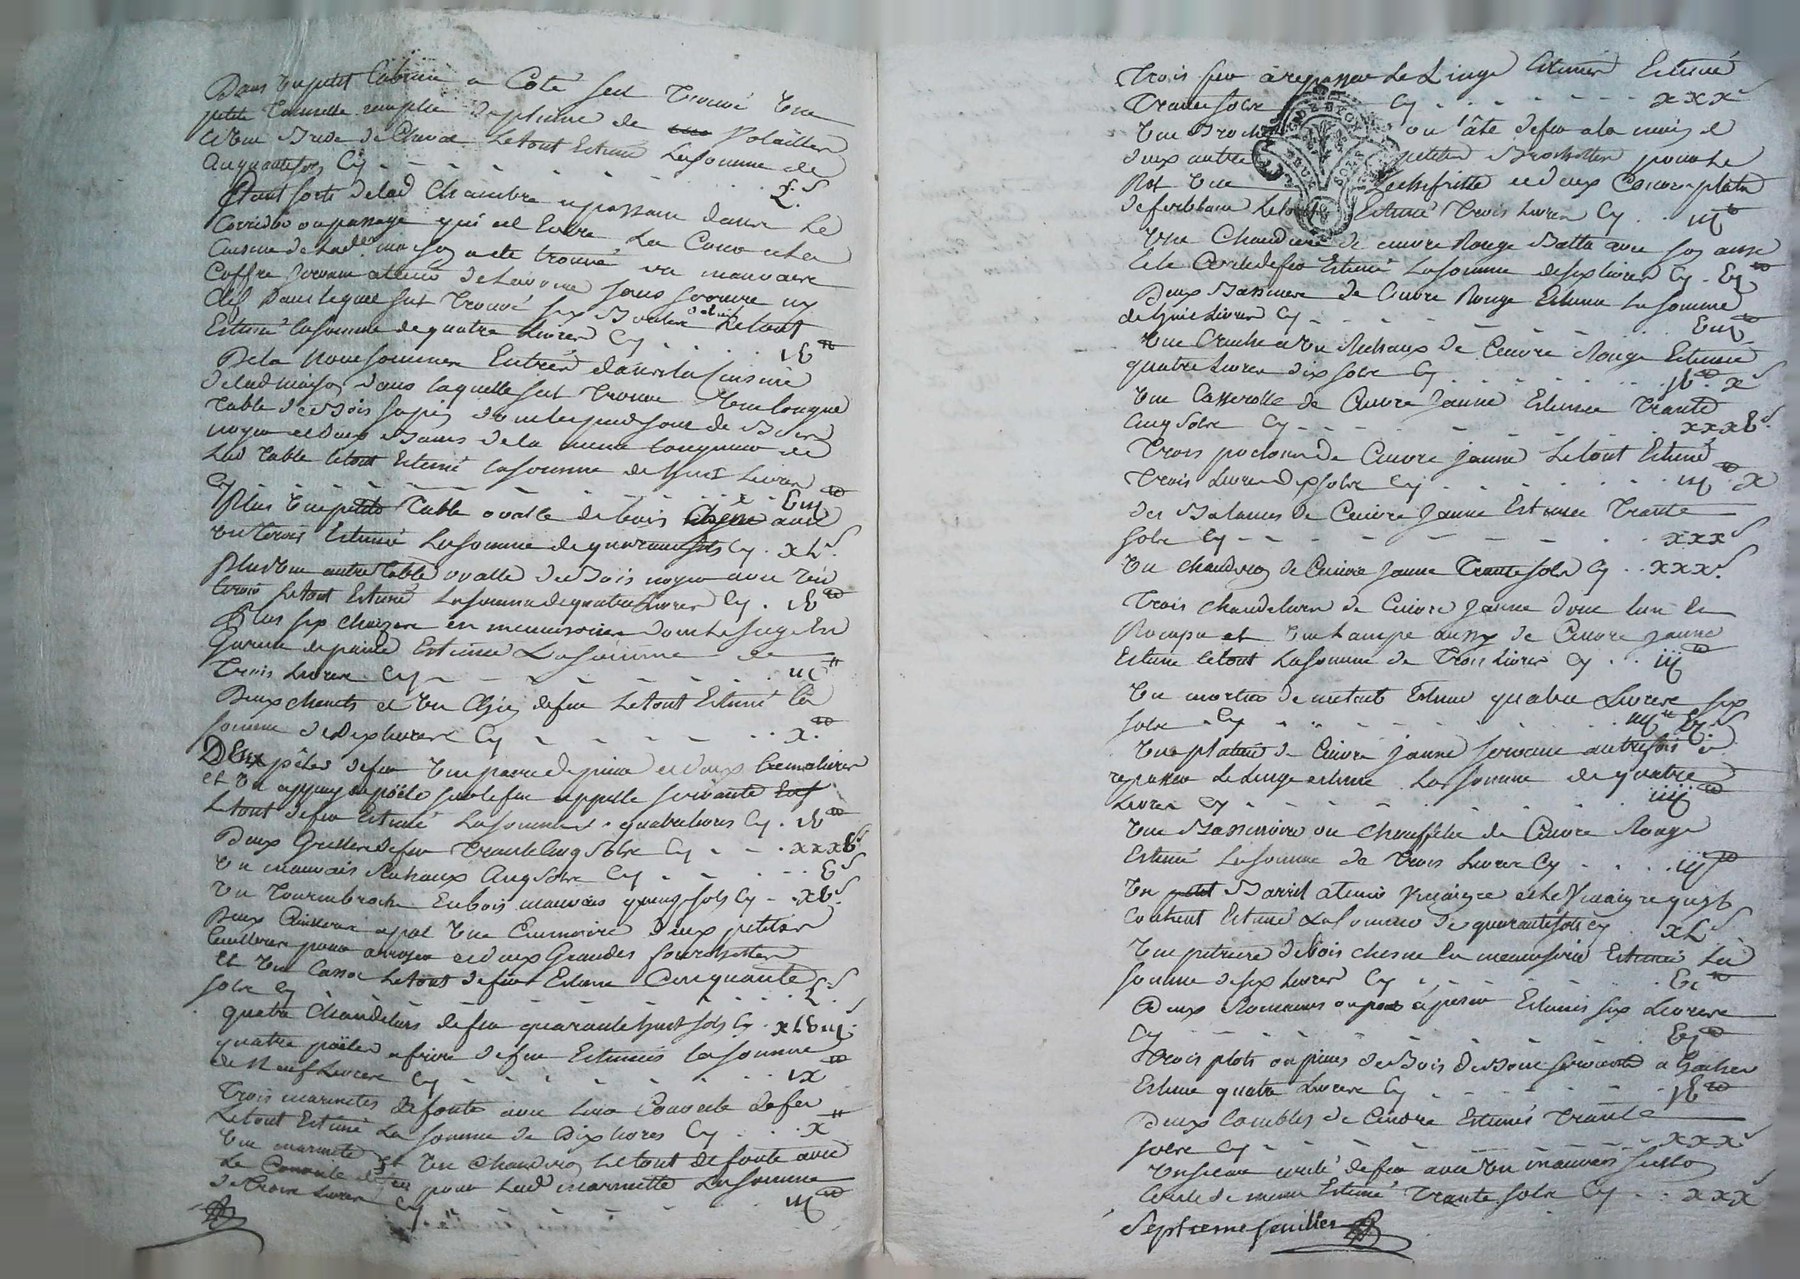 Dans un petit Cabinet a Coté sest Trouvé Une
petite Tonnelle remplie de plume de Volaillen
et une Bride de Cheval Le tout Estimé La somme de
Cinquante sols Cy - - - L s
Etant sorts de lad Chambre et passant dans Le
Corridor ou passage qui est Entre La Cour et la
Cuisine de Lad maison a eté trouvé un mauvais
Coffre servant a tenir de Lavoine sans serrure ny
Clef Dans lequel sest Trouvé six Le tout
Estimé la somme de quatre Livres Cy . . . . iv tt
De la Nous sommes Entrés dans la Cuisine
de lad maison dans laquelle sest Trouvé Une longue
Table de Bois sapin dont les pieds sont de Bois
noyer et deux Bancs de la meme longueur de
Lad Table le tout Estimé la somme de huit Livres
Cy - - - - - viij tt
Plus une petite Table ovalle de bois Chene avec
un tiroir Estimé La somme de quarante sols Cy . xL s
Plus Une autre table ovalle de Bois noyer avec un
tiroir Le tout Estimé La somme de quatre Livres Cy . iv tt
Plus six chaizes en menuiserie dont le siege Est
Garnie de paille Estimée La somme de
Trois Livres Cy - - - - iij tt
Deux chenets et Un de fer Le tout Estimé la
somme de dix livres Cy - - - - x tt
Deux pëles de fer Une paire de pince et deux Cremalieres
et Un appuy de poële sur le feu appellé servante
Le tout de fer Estimé La somme de quatre livres Cy . iv tt
Deux Grilles de fer Trante Cinq Sols Cy - - . xxxv s
Un mauvais Rechaux Cinq Sols Cy . - . - v s
Un Tournebroche En bois mauvais quinze sols Cy - . xv s
Deux Cuilleres a pot Une Ecumoire deux petites
Cuilleres pour arroser et deux Grandes fourchettes
et Une Casse Le tout de fer Estimé Cinquante
sols Cy . . . . . . . . L s
quatre Chandeliers de fer quarante huit sols Cy . xLviij s
quatre poëles a frire de fer Estimées la somme
de Neuf Livres Cy - - - - ix tt
Trois marmites de fonte avec Leur Couvercle de fer
Le tout Estimé La somme de Dix livres Cy . . . x tt
Une marmite et Un Chaudron Le tout de fonte avec
Le Couvercle de fer pour Lad marmitte La somme
de Trois Livres Cy - - - iij tt
Trois fer a repasser Le Linge Estimés Estimé
Trante sols Cy - - - - - - xxx s
Une Broche ou l'âte de fer a la main et
deux autre petites Brochettes pour le
Rot Une Lechefritte et deux Couvre plats
de ferblanc Le tout Estimé Trois Livres Cy . . iij tt
Une Chaudiere de cuivre Rouge Battu avec son anse
et le Cercle de fer Estimé La somme de six livres Cy . vj tt
Deux Bassines de Cuivre Rouge Estimé La somme
de huit Livres Cy - - - - - viij tt
Une Cruche et Un Rechaux de Cuivre Rouge Estimée
quatre Livres dix sols Cy . . . . . . iv tt x s
Une Casserolle de Cuivre Jaune Estimée Trante
Cinq Sols Cy - - - - - xxxv s
Trois poclons de Cuivre jaune Le tout Estimé
Trois Livres dix sols Cy . . . . . iij tt x
des Balances de Cuivre Jaune Estimée Trante
sols Cy - - - - - - - xxx s
Un chaudron de Cuivre Jaune Trante sols Cy . . xxx s
Trois chandeliers de Cuivre Jaune dont lun Est
Rompu et Une Lampe aussy de Cuivre Jaune
Estimé le tout La somme de Trois Livres Cy . . iij tt
Un mortier de métail Estimé quatre Livres six
sols Cy - - - - iiij tt vj s
Une platine de Cuivre jaune servant autrefois à
repasser Le Linge estimé La somme de quatre
Livres Cy - - - - - - iiij tt
Une Bassinoire ou chauffelit de Cuivre Rouge
Estimé La somme de Trois Livres Cy . . . iij tt
Un petit Barril a tenir Vinaigre et le Vinaigre quil
Contient Estimé La somme de quarante sols cy . xL s
Une petriere de bois chesne En menuiserie Estimée La
somme de six Livres Cy . . . . . vi tt
Deux Romaines ou poid à peser Estimés six Livres
Cy - - - - - - vj tt
Trois plots ou pieces de Bois de Bout servant a hacher
Estimé quatre Livres Cy - - - - - iv tt
Deux Combles de Cuivre Estimés Trante
sols Cy - - - - - - - xxx s
Un seau de fer avec Un mauvais
de meme Estimé Trante sols Cy - . . xxx s
Septieme feuillet